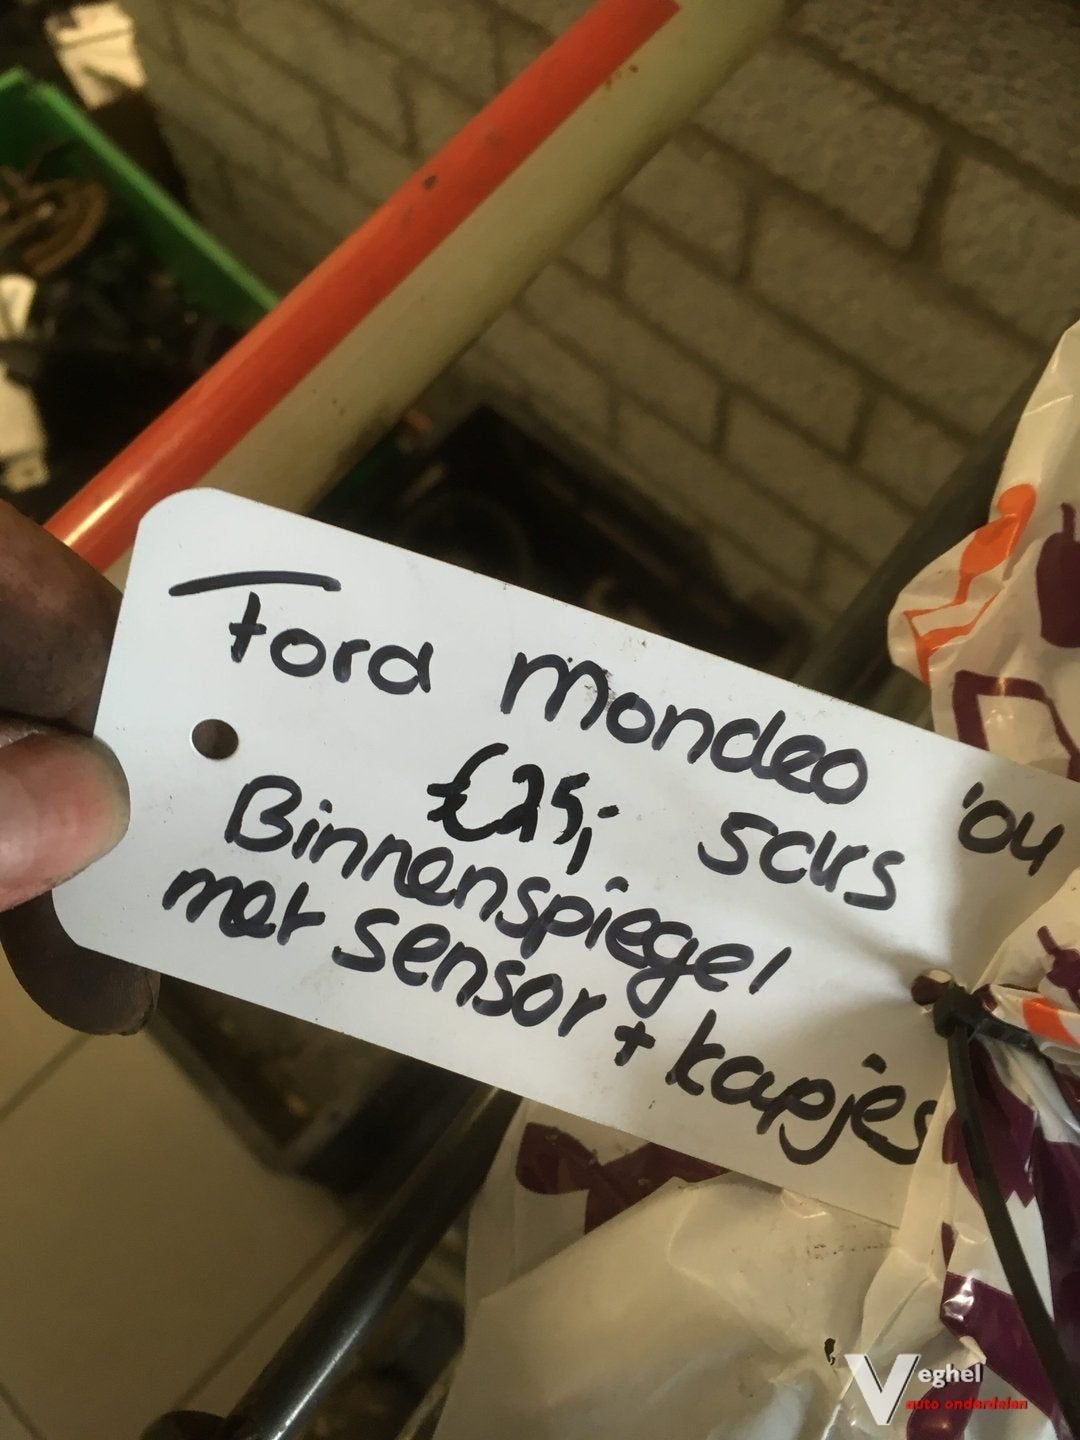 Ford Mondeo '04
€25,- 5drs
Binnenspiegel
met sensor + kapjes
Veghel
auto onderdelen